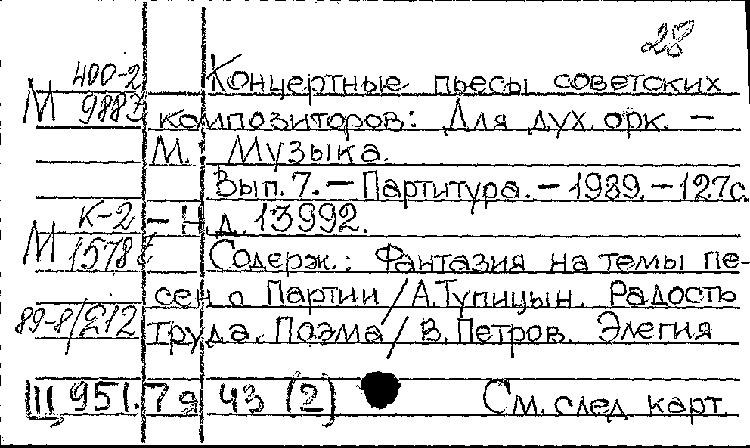 28
400-2 Концертные пьесы советских
М 9883 композиторов: Для дух. орк. –
М.: Музыка.
Вып. 7. – Партитура. – 1989. – 127с.
К-2 – Н.д. 13992.
М 1578 Содерж.: Фантазия на темы пе-
сен о Партии / А.Тупицын. Радость
89-8/212 труда. Поэма / В. Петров. Элегия
Щ 951.7я 43 (2) См. след. карт.